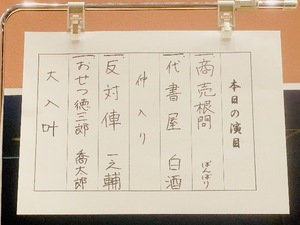 本日の演目
一、商売根問 ぼんぼり
一、代書屋 白酒
仲入り
一、反対俥 一之輔
一、おせつ徳三郎 喬太郎
大入叶